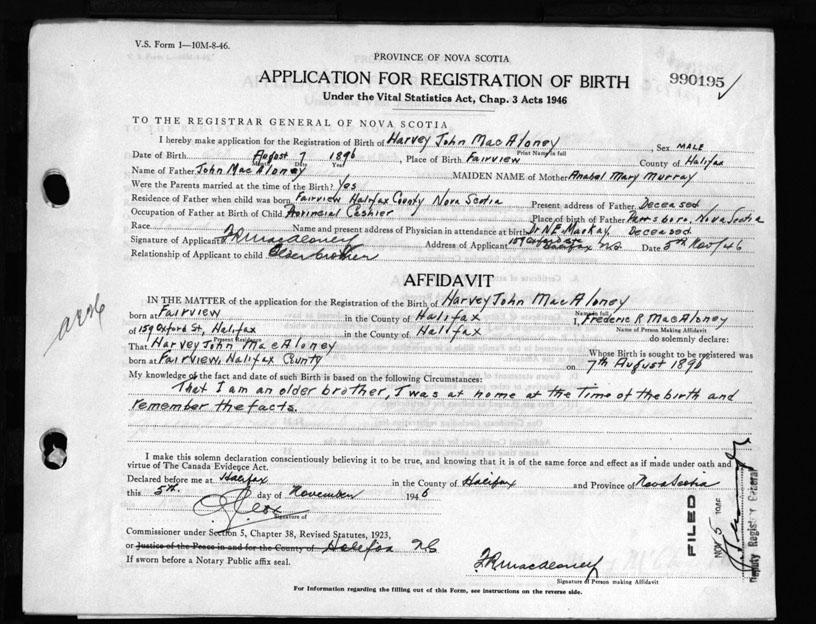 V.S. Form 1—10M-8-46.
PROVINCE OF NOVA SCOTIA
APPLICATION FOR REGISTRATION OF BIRTH
990195
Under the Vital Statistics Act, Chap. 3 Acts 1946
TO THE REGISTRAR GENERAL OF NOVA SCOTIA
I hereby make application for the Registration of Birth of Harvey John MacAloney, Sex MALE
Print Name in full
Date of Birth August 7 1896, Place of Birth Fairview County of Halifax
Month Day Year
Name of Father John MacAloney MAIDEN NAME of Mother Anabel Mary Murray
Were the Parents married at the time of the Birth? Yes
Residence of Father when child was born Fairview Halifax County Nova Scotia Present address of Father Deceased
Occupation of Father at Birth of Child Provincial Cashier Place of birth of Father Parrsboro, Nova Scotia
Race Name and present address of Physician in attendance at birth Dr N.E. MacKay Deceased
Signature of Applicant F.R. MacAloney Address of Applicant 159 Oxford St Halifax N.S. Date 5th Nov/46
Relationship of Applicant to child Elder brother
AFFIDAVIT
IN THE MATTER of the application for the Registration of the Birth of Harvey John MacAloney
Name in full
born at Fairview in the County of Halifax I, Frederic R MacAloney
Name of Person Making Affidavit
of 159 Oxford St, Halifax in the County of Halifax do solemnly declare:
Present Residence
That Harvey John MacAloney Whose Birth is sought to be registered was
born at Fairview, Halifax County on 7th August 1896
My knowledge of the fact and date of such Birth is based on the following Circumstances:
That I am an older brother, I was at home at the Time of the birth and
remember the facts.
I make this solemn declaration conscientiously believing it to be true, and knowing that it is of the same force and effect as if made under oath and
virtue of The Canada Evidence Act.
Declared before me at Halifax in the County of Halifax and Province of Nova Scotia
this 5th. day of November 1946
Signature of
Commissioner under Section 5, Chapter 38, Revised Statutes, 1923,
or Justice of the Peace in and for the County of Halifax N.S
If sworn before a Notary Public affix seal.
F.R. MacAloney
Signature of Person making Affidavit
For Information regarding the filling out of this Form, see instructions on the reverse side.
FILED
NOV 5 1946
Deputy Registrar General